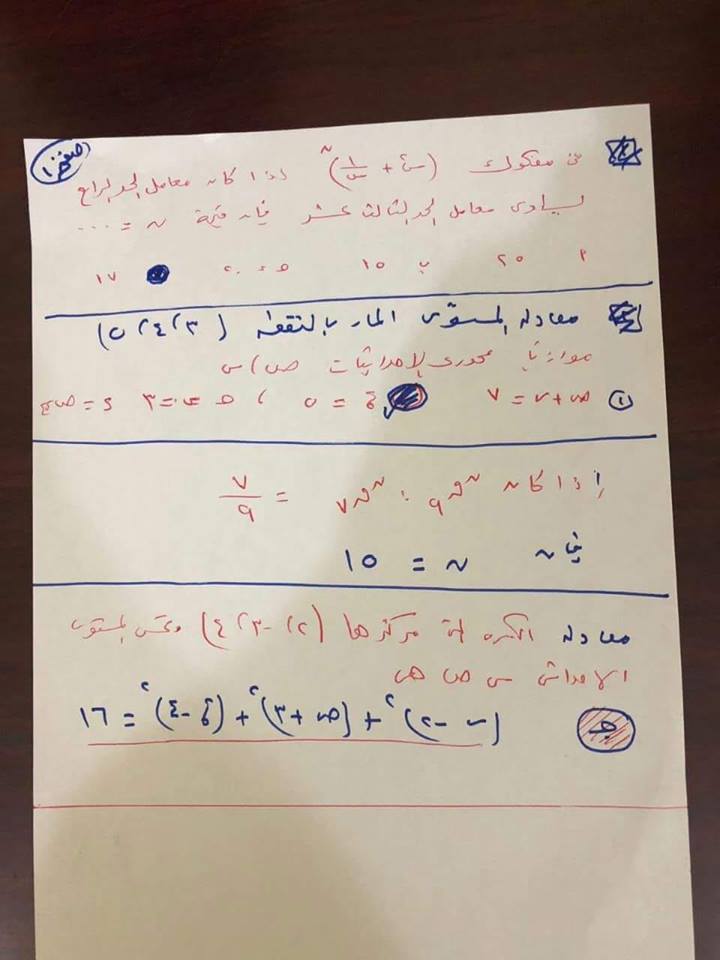 صفحة ١
فى مفكوك (س٢ + ١/س)ن اذا كان معامل الحد الرابع
يساوى معامل الحد الثالث عشر فإن قيمة ن = ...
١٥ ب ٢٥ ١٧
معادلة المستوى المار بالنقطة (٣، ٤، ٥)
موازياً محورى الإحداثيات ص، س
① ص + س = ٧ ع = ٥ ، ص = ٤
إذا كان ٩ : ٧ = ٧/٩
فإن ن = ١٥
معادلة الكره التى مركزها (٢، -٣، ٤) وتمس المستوى
الإحداثى س ص هى
ج (س - ٢)٢ + (ص + ٣)٢ + (ع - ٤)٢ = ١٦